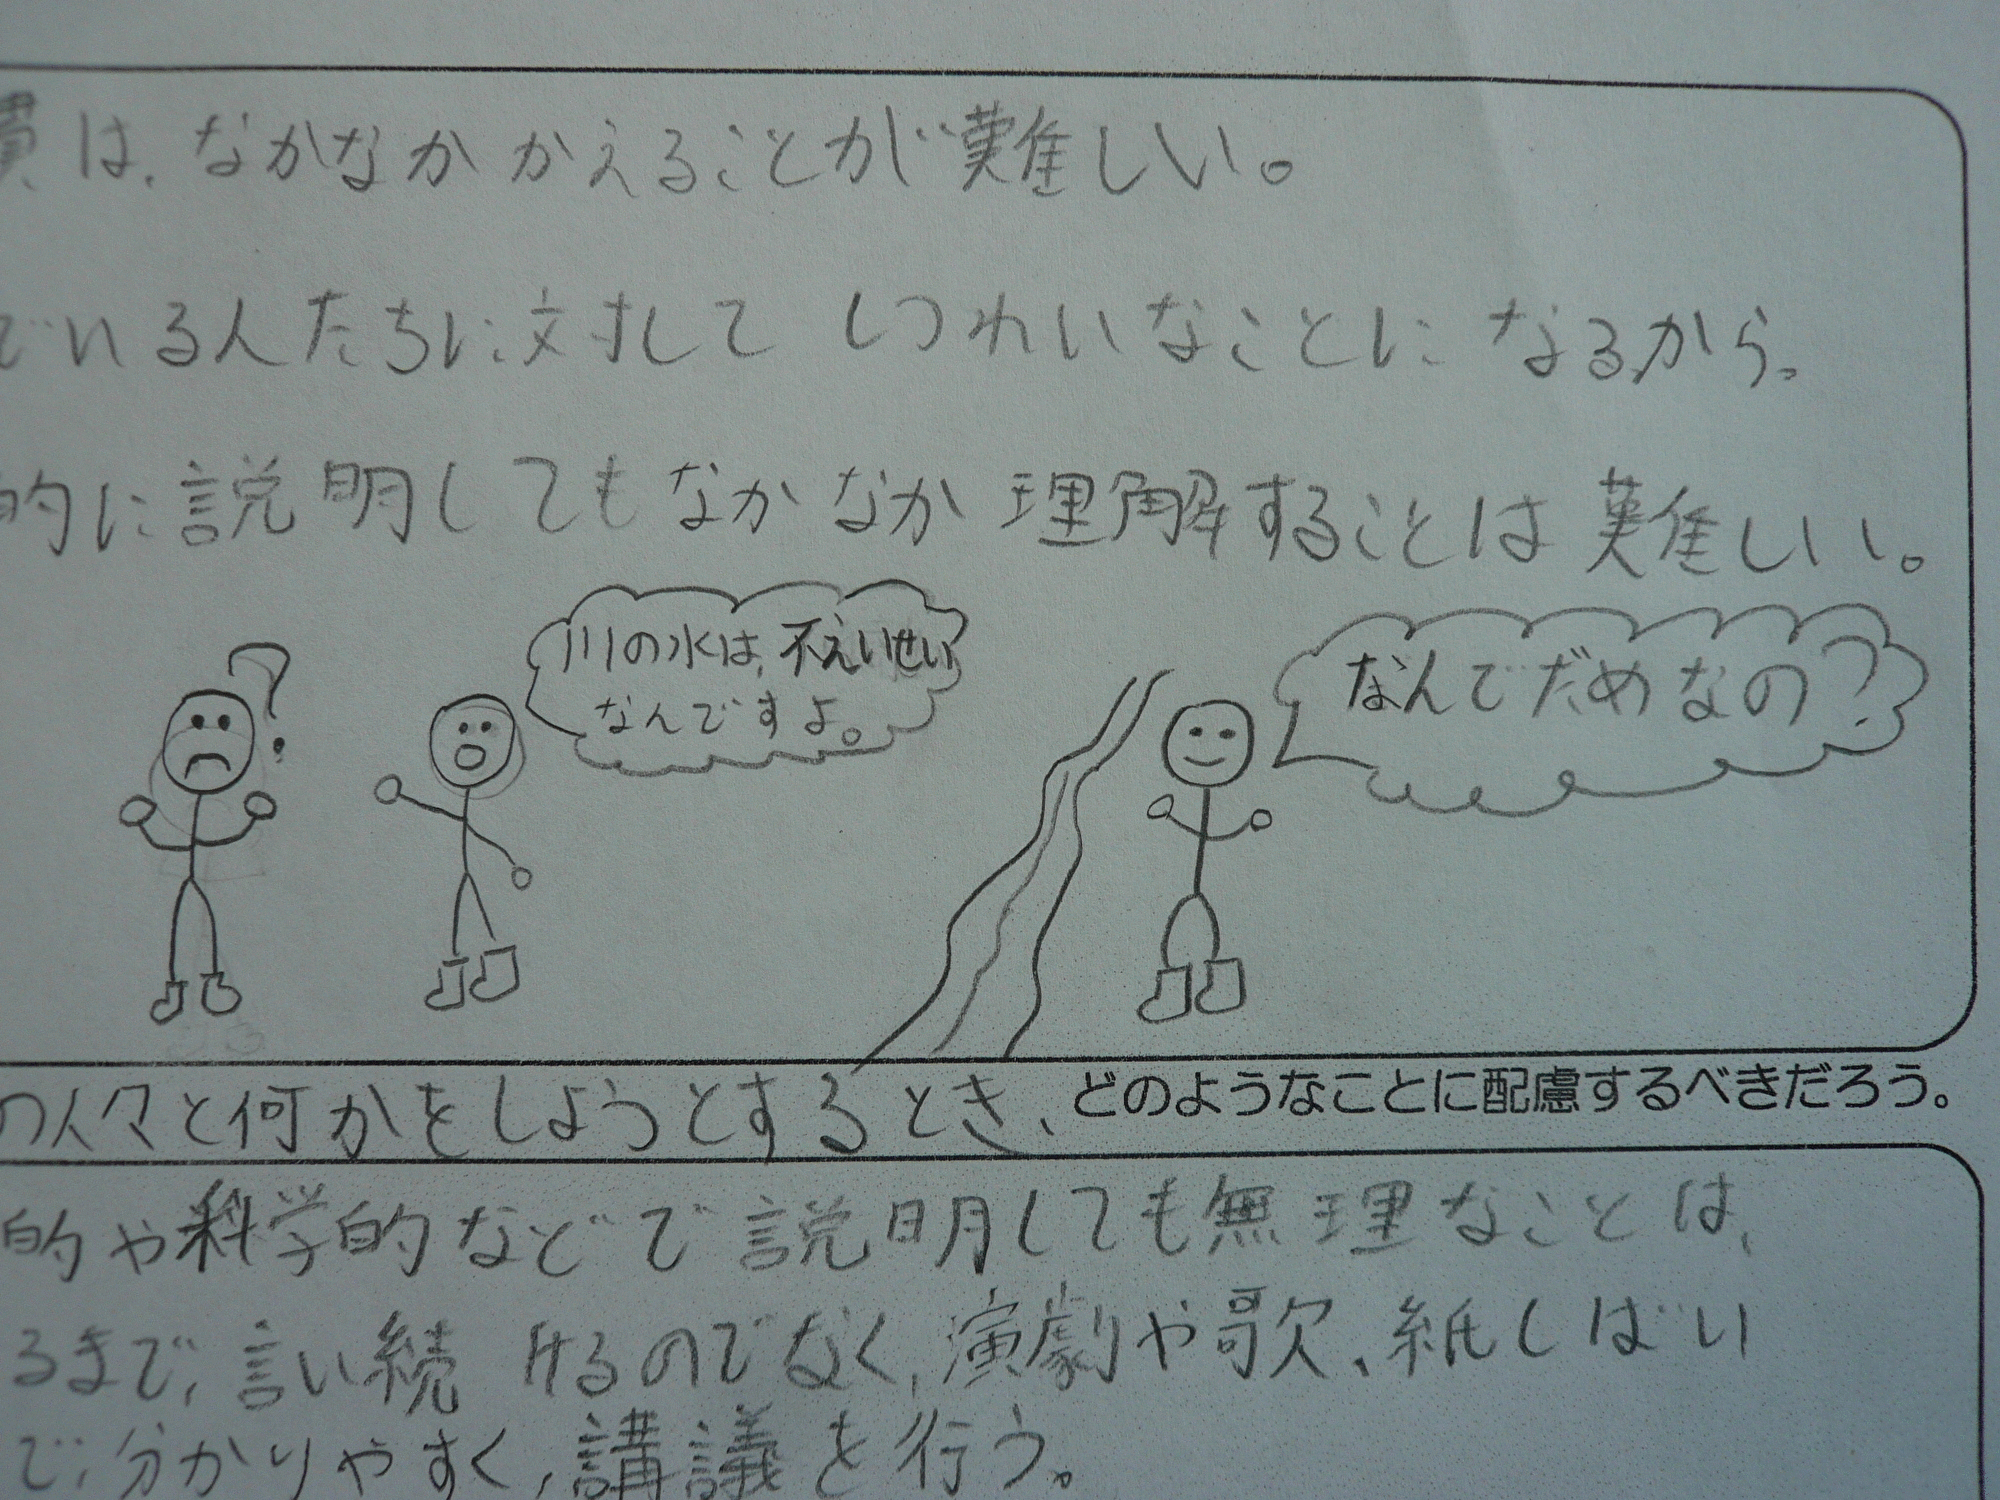 慣は、なかなかかえることが難しい。
でいる人たちに対してしつれいなことになるから。
的に説明してもなかなか理解することは難しい。
川の水は、不えいせい
なんですよ。
なんでだめなの?
?
の人々と何かをしようとするとき、どのようなことに配慮するべきだろう。
的や科学的などで説明しても無理なことは、
るまで、言い続けるのでなく、演劇や歌、紙しばい
で、分かりやすく、講義を行う。